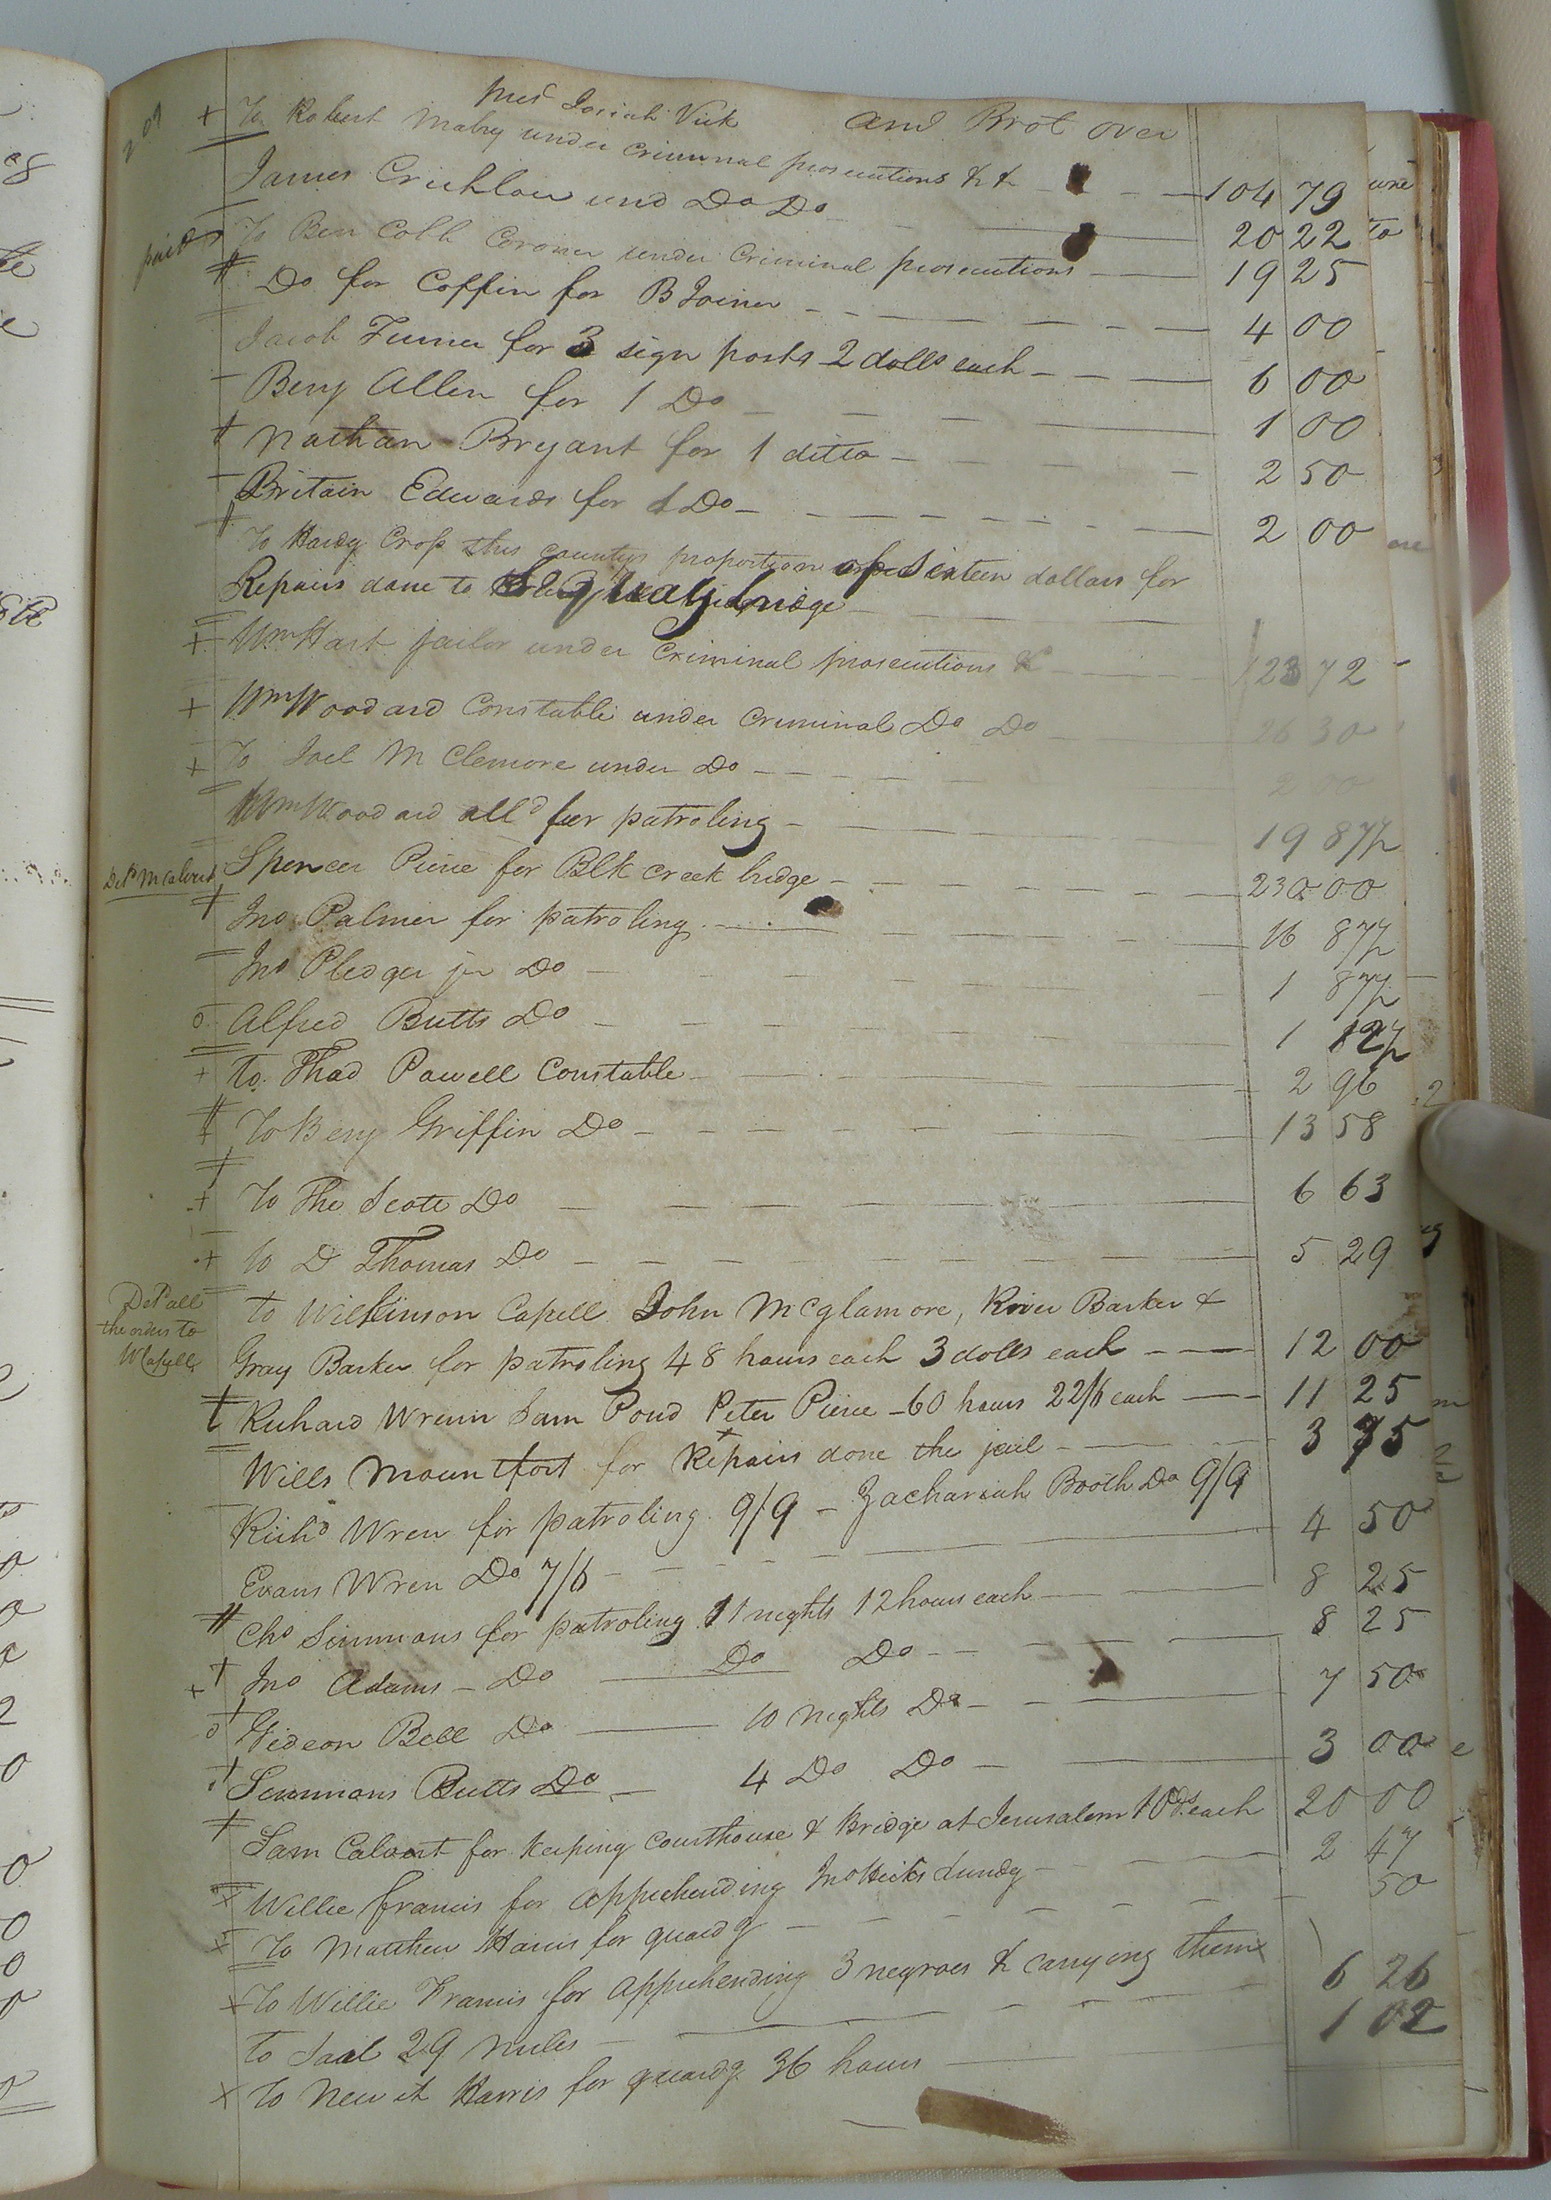 209
Josiah Vick and Brot over
+ To Robert Mabry under criminal prosecutions &c 104 79
James Crichlow und Do Do 20 22
paid To Ben Cobb Coroner under Criminal prosecutions 19 25
Do for Coffin for B Joiner 4 00
Jacob Turner for 3 sign posts 2 dolls each 6 00
Benj Allen for 1 Do 1 00
Nathan Bryant for 1 ditto 2 50
Britain Edwards for 1 Do 2 00
To Hardy Crop this countys proportion of Sixteen dollars for
Repairs done to bridge
+ Wm Hart jailor under criminal prosecutions & 123 72
+ Wm Woodard Constable under criminal Do Do 26 30
+ To Joel McClemore under Do
Wm Woodard alld for patroling 19 87½
Spencer Pierce for Blk creek bridge 230 00
Jno Palmer for patroling 16 87½
Jno Pledger jr Do 1 87½
o Alfred Butts Do 1 12½
+ to Thad Powell Constable 2 96
+ To Benj Griffin Do 13 58
+ To Tho Scott Do 6 63
+ to D Thomas Do 5 29
Del all
the orders to
W Capell
to Wilkinson Capell John McGlamore, River Barker &
Gray Barker for patroling 48 hours each 3 dolls each 12 00
Richard Wrenn Sam Pond Peter Pierce 60 hours 22/6 each 11 25
Wills Mountfort for Repairs done the jail 3 75
Richd Wren for patroling 9/9 - Zachariah Booth Do 9/9
Evans Wren Do 7/6 4 50
Chs Simmons for patroling 11 nights 12 hours each 8 25
+ Jno Adams - Do Do Do 8 25
o Gideon Bell Do 10 nights Do 7 50
Simmons Butts Do 4 Do Do 3 00
Sam Calvert for keeping courthouse & Bridge at Jerusalem 10Ds each 20 00
x Willie Francis for apprehending Jno Hicks Lundy 2 47
x To Matthew Harris for guardg 50
x To Willie Francis for apprehending 3 negroes & carrying them
to Jail 29 miles 6 26
x To Newit Harris for guardg 36 hours 1 02